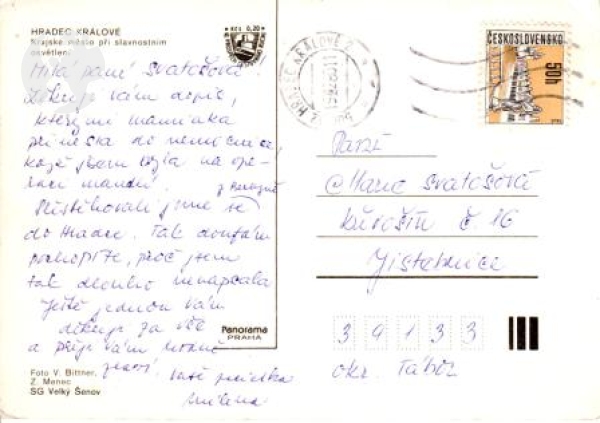 HRADEC KRÁLOVÉ
Krajské město při slavnostním
osvětlení
Milá paní Svatošová!
Děkuji Vám dopis,
který mi maminka
přinesla do nemocnice,
když jsem ležela na ope-
raci mandlí.
Přistěhovali jsme se
do Hradce. Tak doufám
pochopíte, proč jsem
tak dlouho nenapsala
Ještě jednou Vám
děkuji za vše
a přeji Vám hodně
zdraví. Vaše
Milena
Panorama
PRAHA
Foto V. Bittner,
Z. Menec
SG Velký Šenov
0,20
HRADEC KRÁLOVÉ 2
ČESKOSLOVENSKO
50h
Paní
Marie Svatošová
č. 16
Jistebnice
39133
okr. Tábor